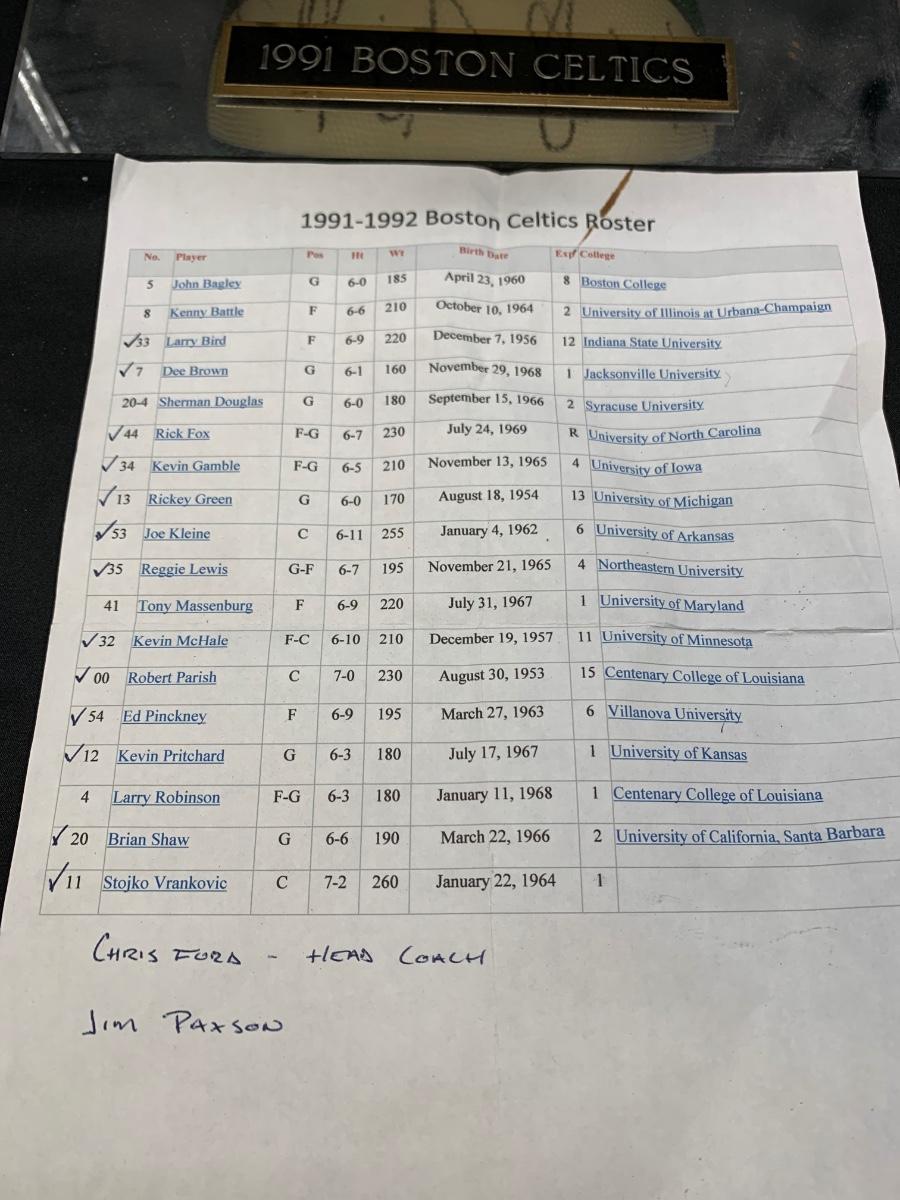 1991 BOSTON CELTICS
1991-1992 Boston Celtics Roster
No. Player Pos Ht Wt Birth Date Exp College
5 John Bagley G 6-0 185 April 23, 1960 8 Boston College
8 Kenny Battle F 6-6 210 October 10, 1964 2 University of Illinois at Urbana-Champaign
✓33 Larry Bird F 6-9 220 December 7, 1956 12 Indiana State University
✓7 Dee Brown G 6-1 160 November 29, 1968 1 Jacksonville University
20-4 Sherman Douglas G 6-0 180 September 15, 1966 2 Syracuse University
✓44 Rick Fox F-G 6-7 230 July 24, 1969 R University of North Carolina
✓34 Kevin Gamble F-G 6-5 210 November 13, 1965 4 University of Iowa
✓13 Rickey Green G 6-0 170 August 18, 1954 13 University of Michigan
✓53 Joe Kleine C 6-11 255 January 4, 1962 6 University of Arkansas
✓35 Reggie Lewis G-F 6-7 195 November 21, 1965 4 Northeastern University
41 Tony Massenburg F 6-9 220 July 31, 1967 1 University of Maryland
✓32 Kevin McHale F-C 6-10 210 December 19, 1957 11 University of Minnesota
✓00 Robert Parish C 7-0 230 August 30, 1953 15 Centenary College of Louisiana
✓54 Ed Pinckney F 6-9 195 March 27, 1963 6 Villanova University
✓12 Kevin Pritchard G 6-3 180 July 17, 1967 1 University of Kansas
4 Larry Robinson F-G 6-3 180 January 11, 1968 1 Centenary College of Louisiana
✓20 Brian Shaw G 6-6 190 March 22, 1966 2 University of California, Santa Barbara
✓11 Stojko Vrankovic C 7-2 260 January 22, 1964 1
CHRIS FORD - HEAD COACH
JIM PAXSON